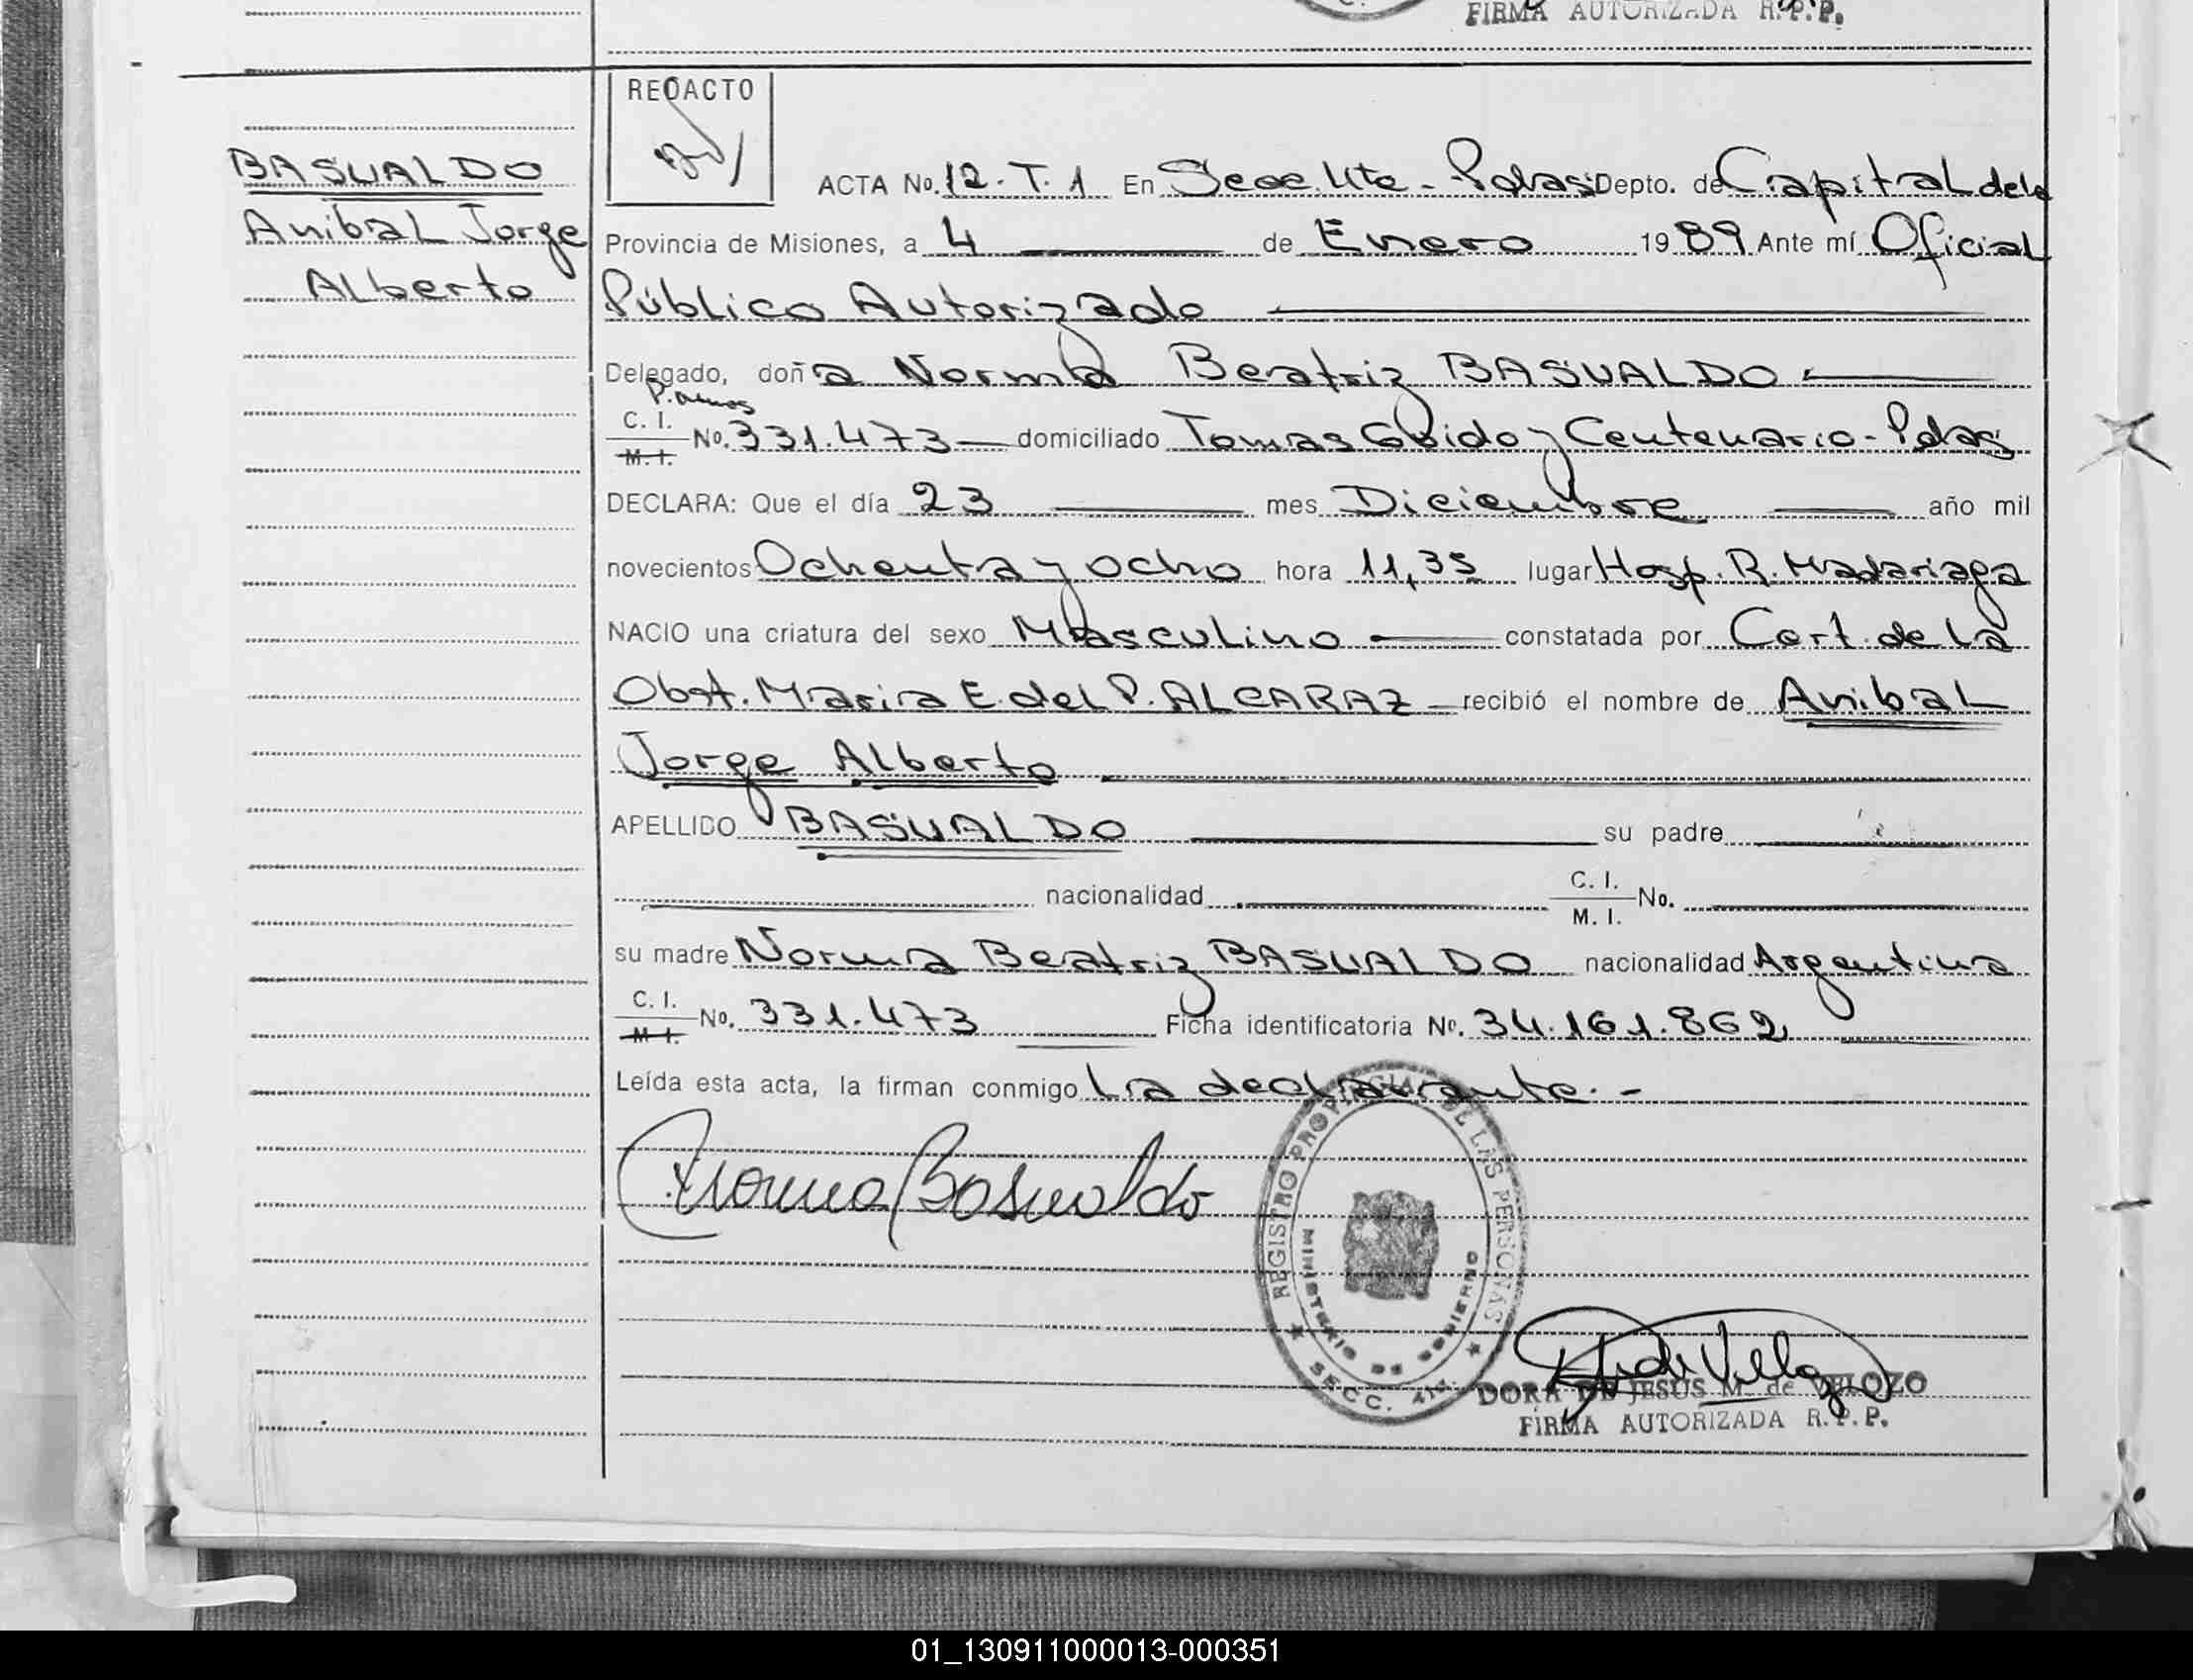 FIRMA AUTORIZADA R.P.P.
REDACTO
BASUALDO
Anibal Jorge
Alberto
ACTA No. 12. T. 1 En Secc. 4ta - Pdas. Depto. de Capital de la
Provincia de Misiones, a 4 de Enero 1989 Ante mí Oficial
Público Autorizado
Delegado, doña Norma Beatriz BASUALDO
C. I. M. I. No. 331.473 domiciliado Tomas Guido y Centenario - Pdas
DECLARA: Que el día 23 mes Diciembre año mil
novecientos Ochenta y ocho hora 11,35 lugar Hosp. R. Madariaga
NACIO una criatura del sexo Masculino constatada por Cert. de la
Obst. Maria E. del P. ALCARAZ recibió el nombre de Anibal
Jorge Alberto
APELLIDO BASUALDO su padre
nacionalidad C. I. M. I. No.
su madre Norma Beatriz BASUALDO nacionalidad Argentina
C. I. M. I. No. 331.473 Ficha identificatoria No. 34.161.862
Leída esta acta, la firman conmigo la declarante. -
Norma Basualdo
REGISTRO PROVINCIAL DE LAS PERSONAS
MINISTERIO DE GOBIERNO
SECC. 4ta.
DORA DE JESUS M. de VELOZO
FIRMA AUTORIZADA R.P.P.
01_130911000013-000351